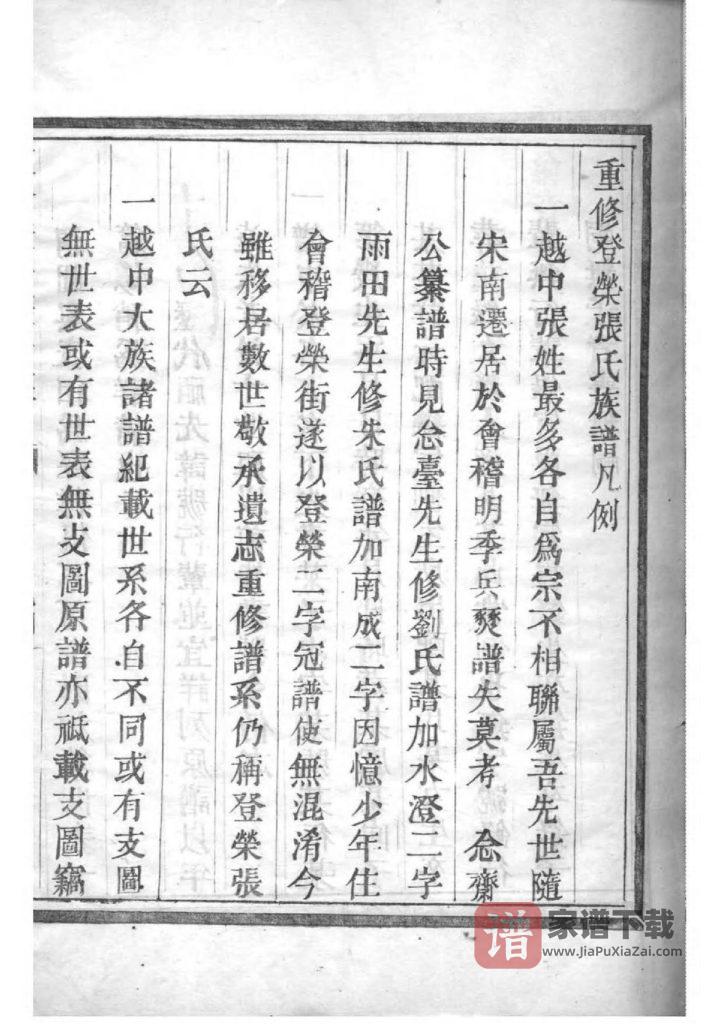 重修登榮張氏族譜凡例
一越中張姓最多各自爲宗不相聯屬吾先世隨
宋南遷居於會稽明季兵燹譜失莫考 念齋
公纂譜時見念臺先生修劉氏譜加水澄二字
雨田先生修朱氏譜加南成二字因憶少年住
會稽登榮街遂以登榮二字冠譜使無混淆今
雖移居數世敬承遺志重修譜系仍稱登榮張
氏云
一越中大族諸譜紀載世系各自不同或有支圖
無世表或有世表無支圖原譜亦祗載支圖竊
谱 家谱下载
www.JiaPuXiaZai.com